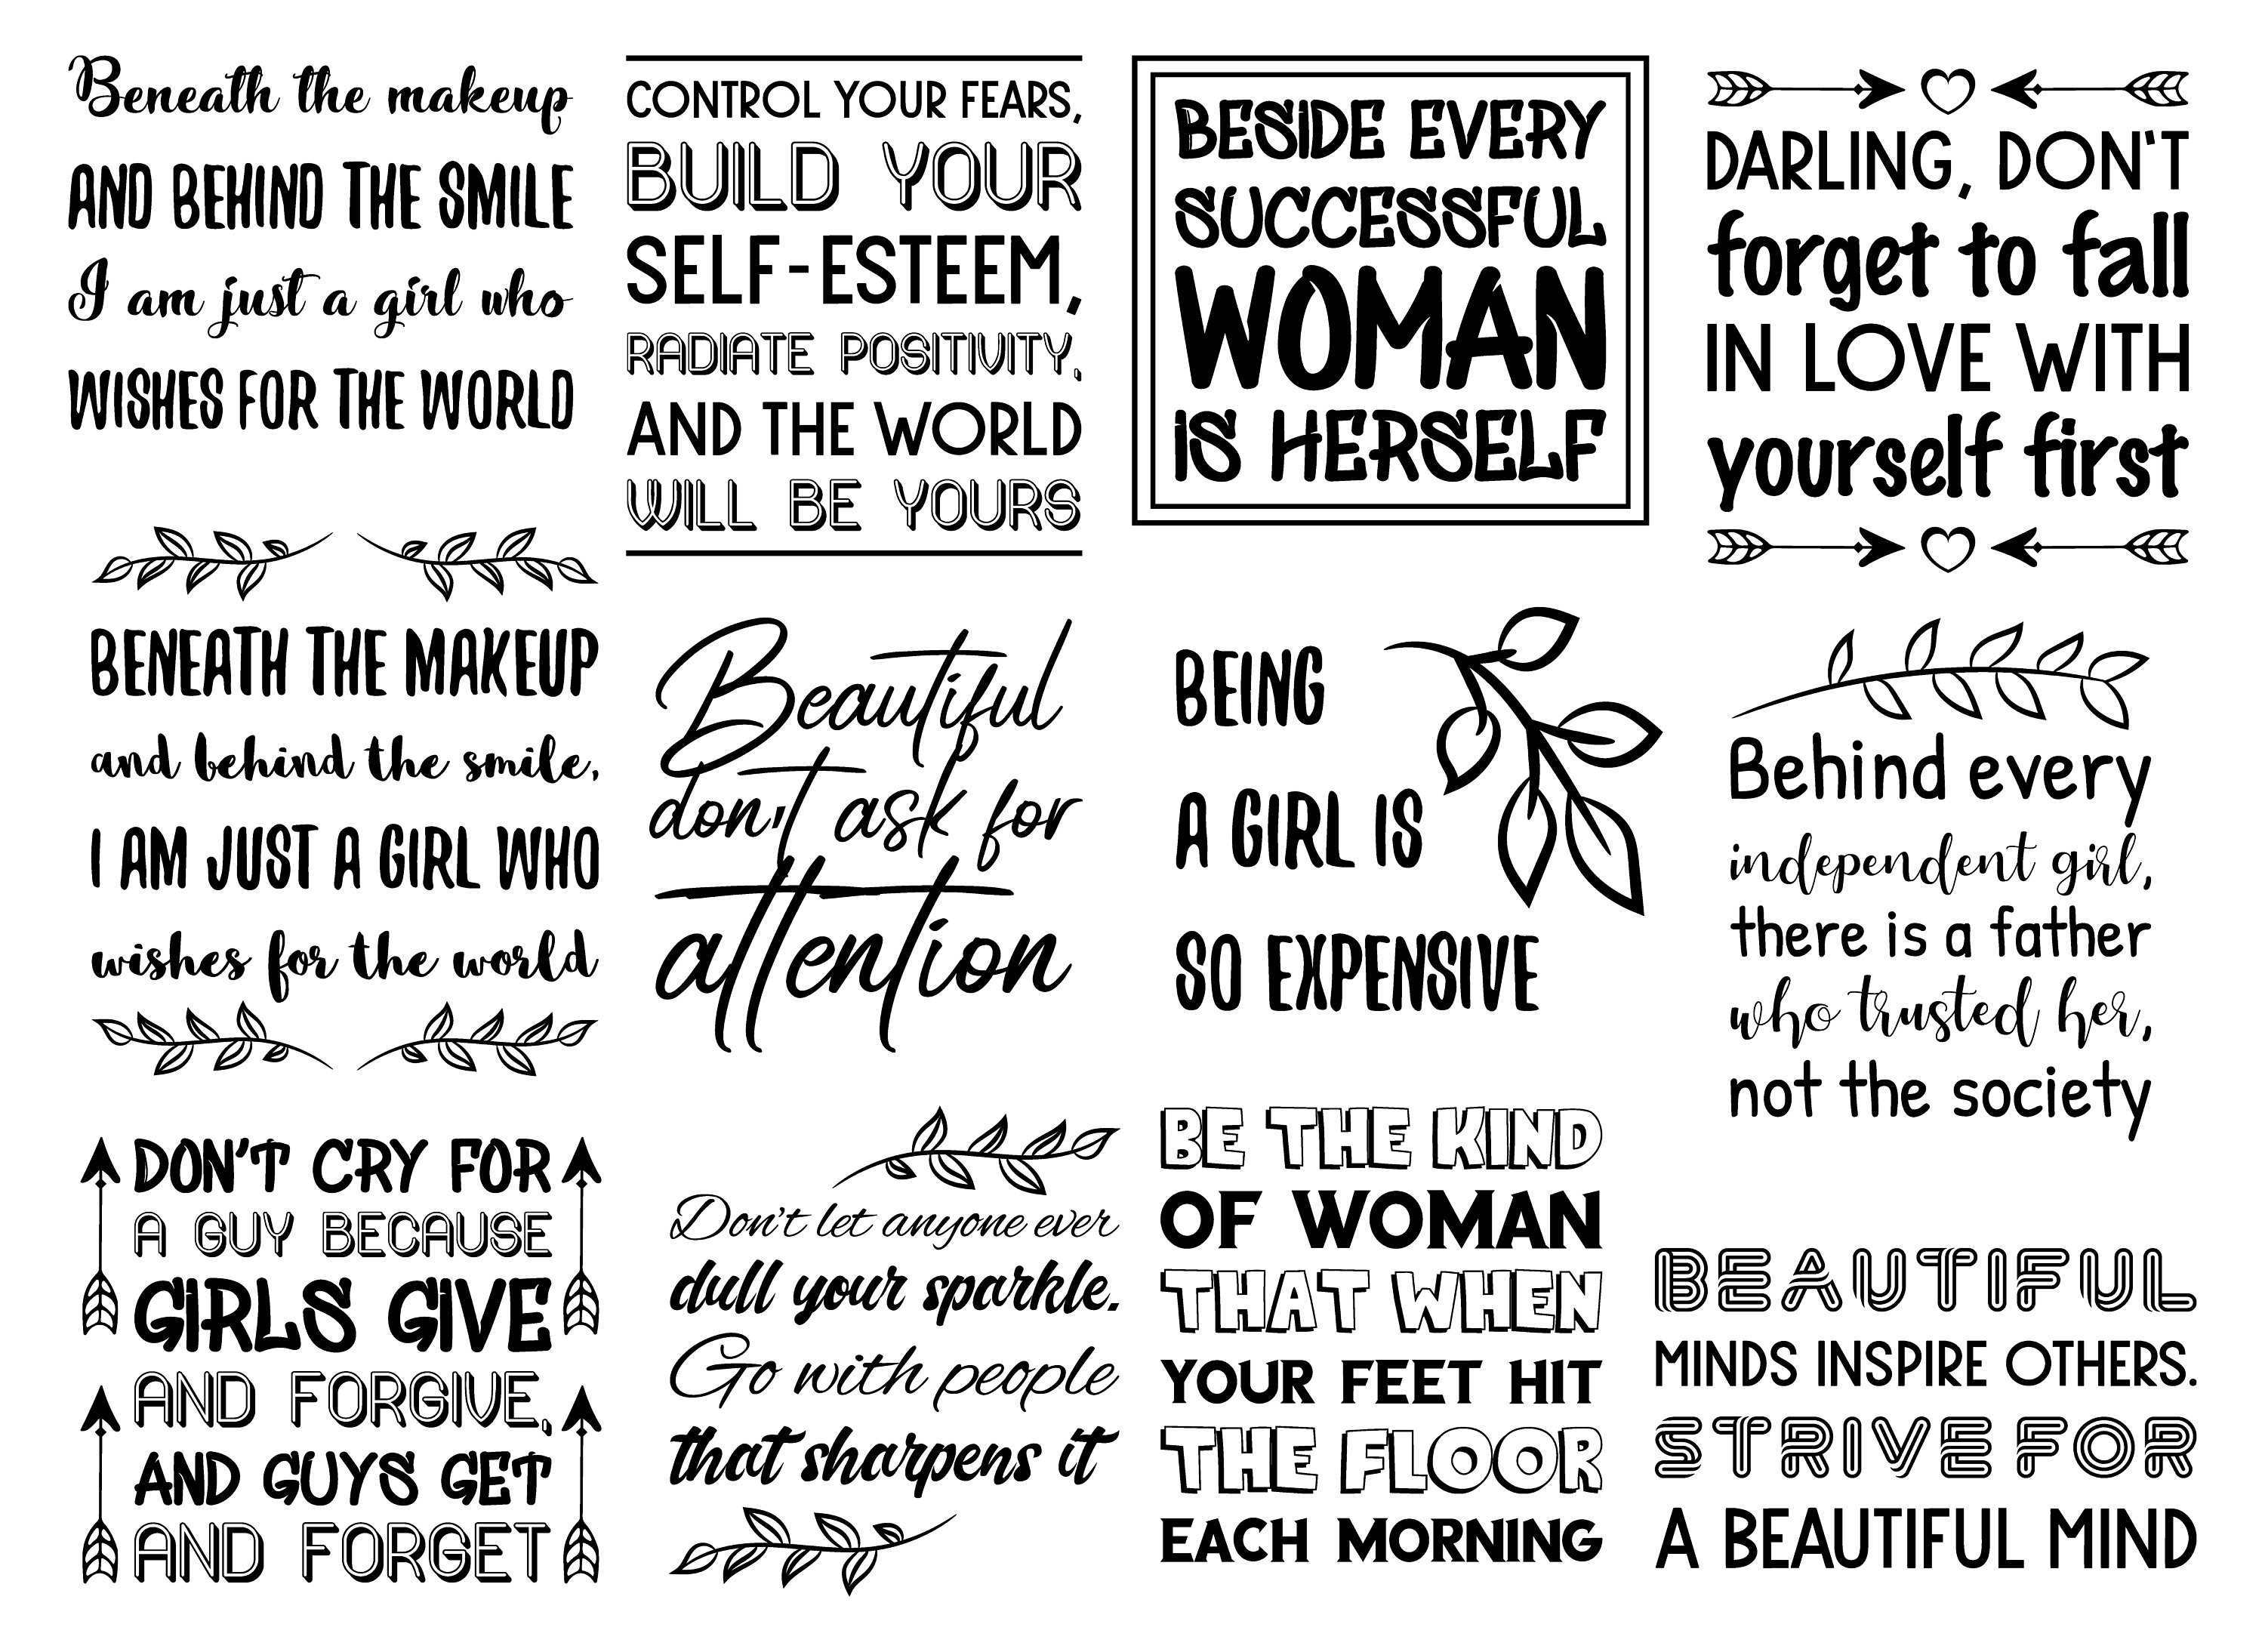 Beneath the makeup
AND BEHIND THE SMILE
I am just a girl who
WISHES FOR THE WORLD
CONTROL YOUR FEARS,
BUILD YOUR
SELF-ESTEEM,
RADIATE POSITIVITY,
AND THE WORLD
WILL BE YOURS
BESIDE EVERY
SUCCESSFUL
WOMAN
IS HERSELF
DARLING, DON'T
forget to fall
IN LOVE WITH
yourself first
BENEATH THE MAKEUP
and behind the smile,
I AM JUST A GIRL WHO
wishes for the world
Beautiful
don't ask for
attention
BEING
A GIRL IS
SO EXPENSIVE
Behind every
independent girl,
there is a father
who trusted her,
not the society
DON'T CRY FOR
A GUY BECAUSE
GIRLS GIVE
AND FORGIVE,
AND GUYS GET
AND FORGET
Don't let anyone ever
dull your sparkle.
Go with people
that sharpens it
BE THE KIND
OF WOMAN
THAT WHEN
YOUR FEET HIT
THE FLOOR
EACH MORNING
BEAUTIFUL
MINDS INSPIRE OTHERS.
STRIVE FOR
A BEAUTIFUL MIND